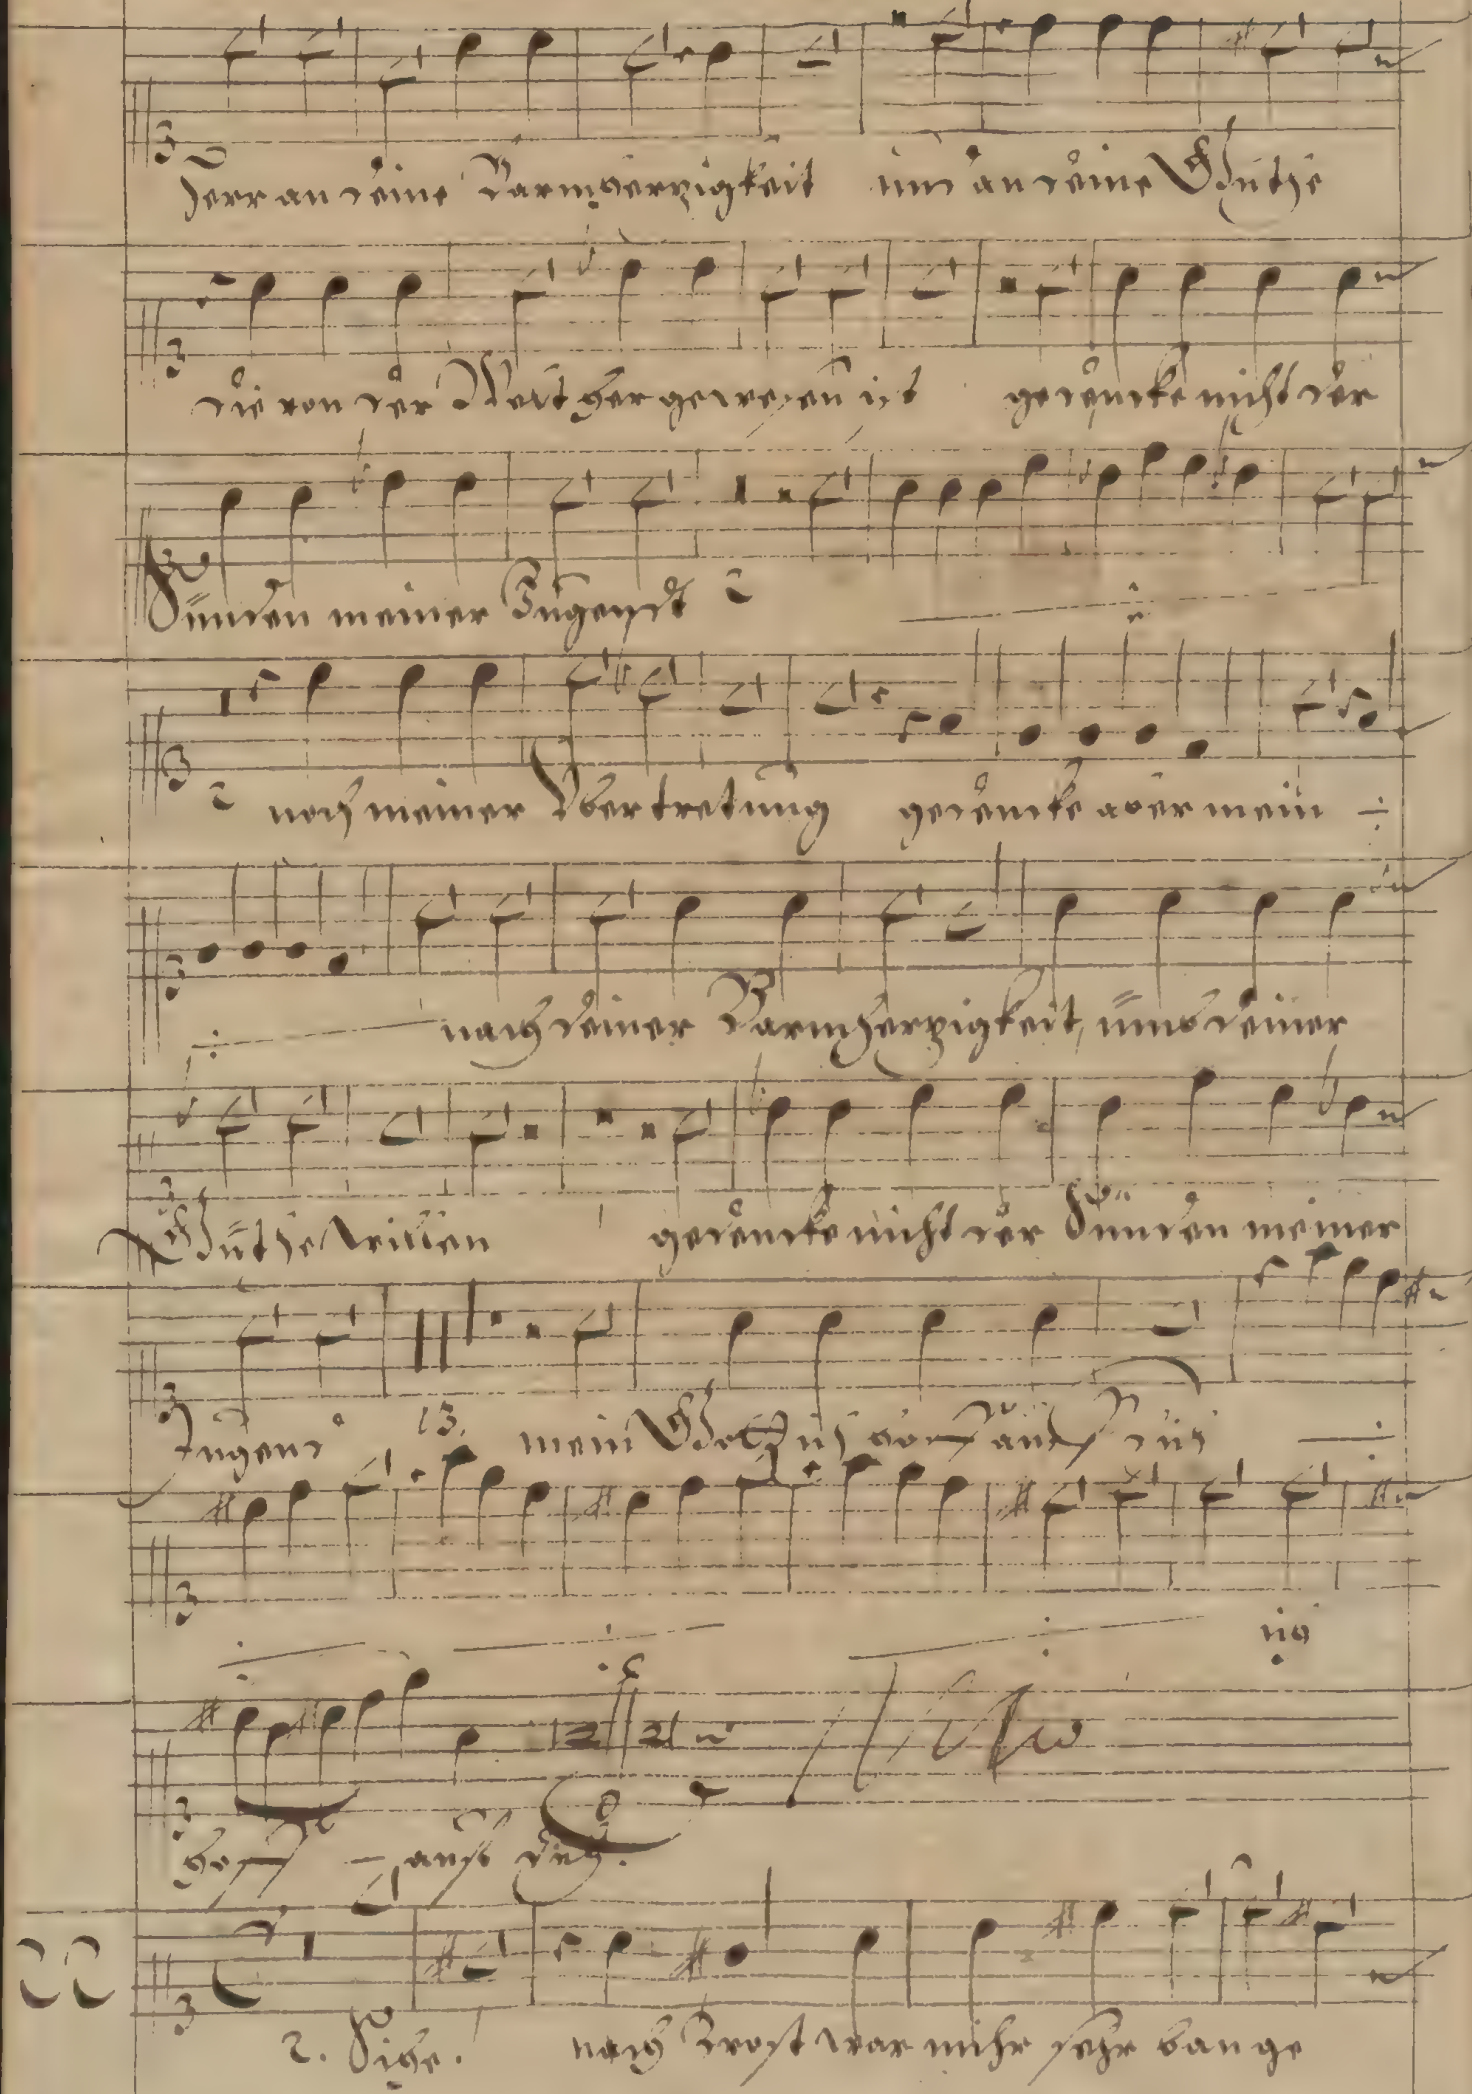 Herr an deine Barmherzigkeit und an deine Güthe
die von der Welt her gewesen ist gedencke nicht der
Sünden meiner Jugendt
noch meiner Übertretung gedencke aber mein
nach deiner Barmherzigkeit, ümb deiner
Güthe willen gedencke nicht der Sünden meiner
Jugend 13. mein Gott ich hoff auff dich
ich
hoff auff dich.
2. Sihe. nach Trost war mihr sehr bange